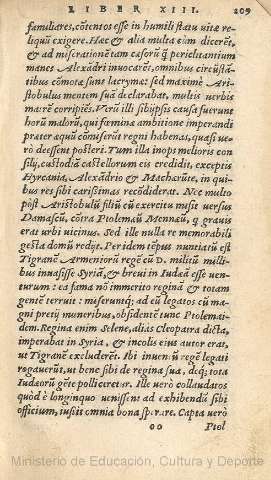 LIBER XIII. 209
familiares, cõtentos esse in humili statu vitæ re-
liquũ exigere. Hæc & alia multa eũm dicerẽt,
& ad miserationẽ tam casorũ q̃ periclitantium
manes Alexãdri inuocarẽt, omnibus circũstã-
tibus cõmotæ sunt lacrymæ: sed maximè Ari-
stobulus mentem suã declarabat, multis verbis
matrẽ corripiẽs. Verũ illi sibyipsis causa fuerunt
horũ malorũ, qui fœminæ ambitione imperandi
præter æquũ cõmiserũt regni habenas, quasi ve-
rò deessent posteri. Tum illa inops melioris con
silij, custodiã castellorum eis credidit, exceptis
Hyrcania, Alexãdrio & Machærũte, in qui-
bus res sibi carissimas recõdiderat. Nec multo
pòst Aristobulũ filiũ cũ exercitu misit versus
Damascũ, cõtra Ptolemæũ Mennæũ, q̃ grauis
erat vrbi vicinus. Sed ille nulla re memorabili
gesta domũ redijt. Per idem tẽpus nuntiatũ est
Tigranẽ Armeniorũ regẽ cũ D. militũ milli
bus inuasisse Syriã, & breui in Iudæã esse ven-
turum: ea fama nõ immeritò reginã & totam
gentẽ terruit: miserũntq; ad eũ legatos cũ ma-
gni pretij muneribus, obsidentẽ tunc Ptolemai-
dem. Regina enim Selene, alias Cleopatra dicta,
imperabat in Syria, & incolis eius autor erat,
vt Tigranẽ excluderẽt. Ibi inuentũ regẽ legati
rogauerũt, vt bene sibi de regina sua, deq; tota
Iudæorũ gẽte polliceretur. Ille verò collaudatos
quòd è longinquo venissent ad exhibendũ sibi
officium, iussit omnia bona sperare. Capta verò
oo Ptol
Ministerio de Educación, Cultura y Deporte